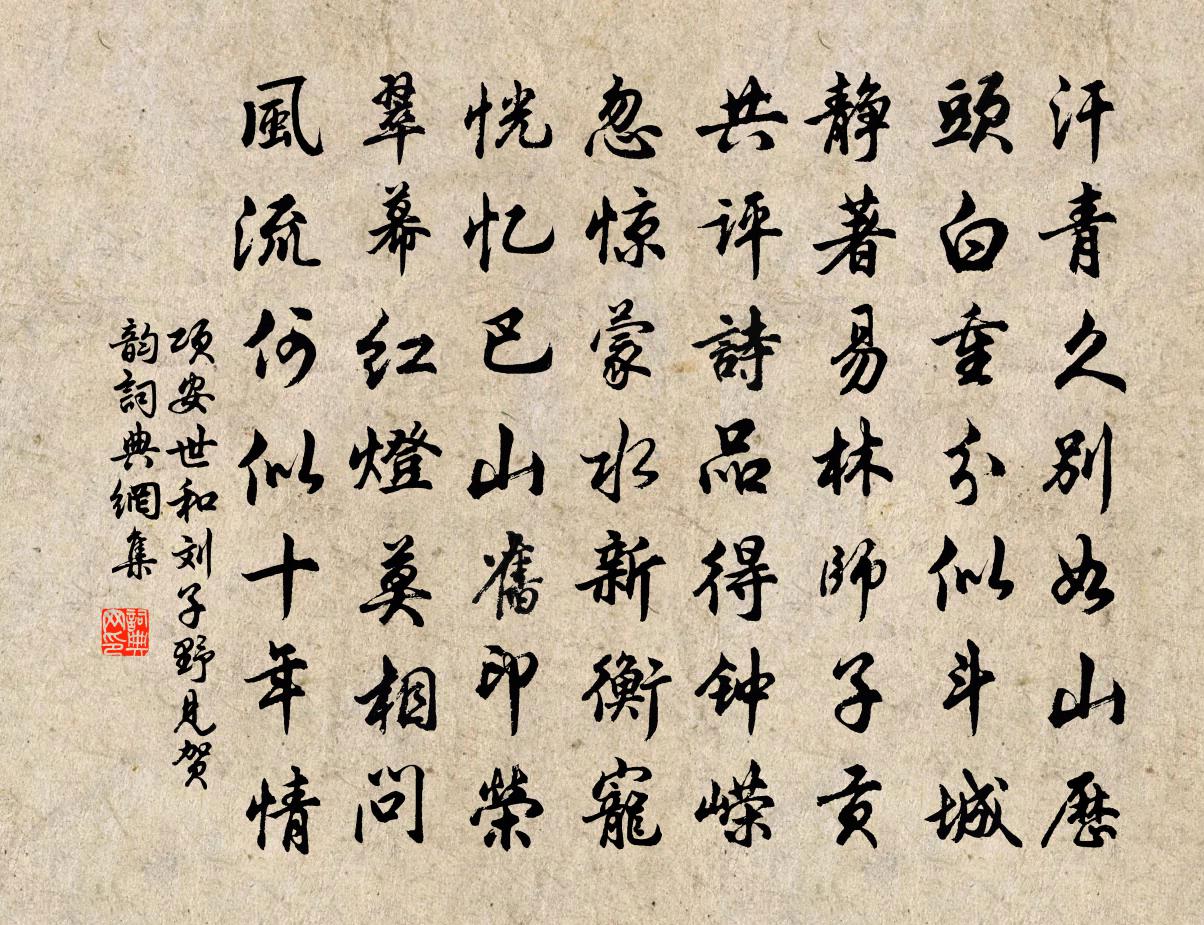 汗青久别如山歷
頭白重分似斗城
静著易林師子貢
共評詩品得钟嶸
忽惊蒙水新衡寵
恍忆巴山舊印榮
翠幕红燈莫相问
風流何似十年情
项安世和刘子野見贺
韵詞典網集
詞典网印